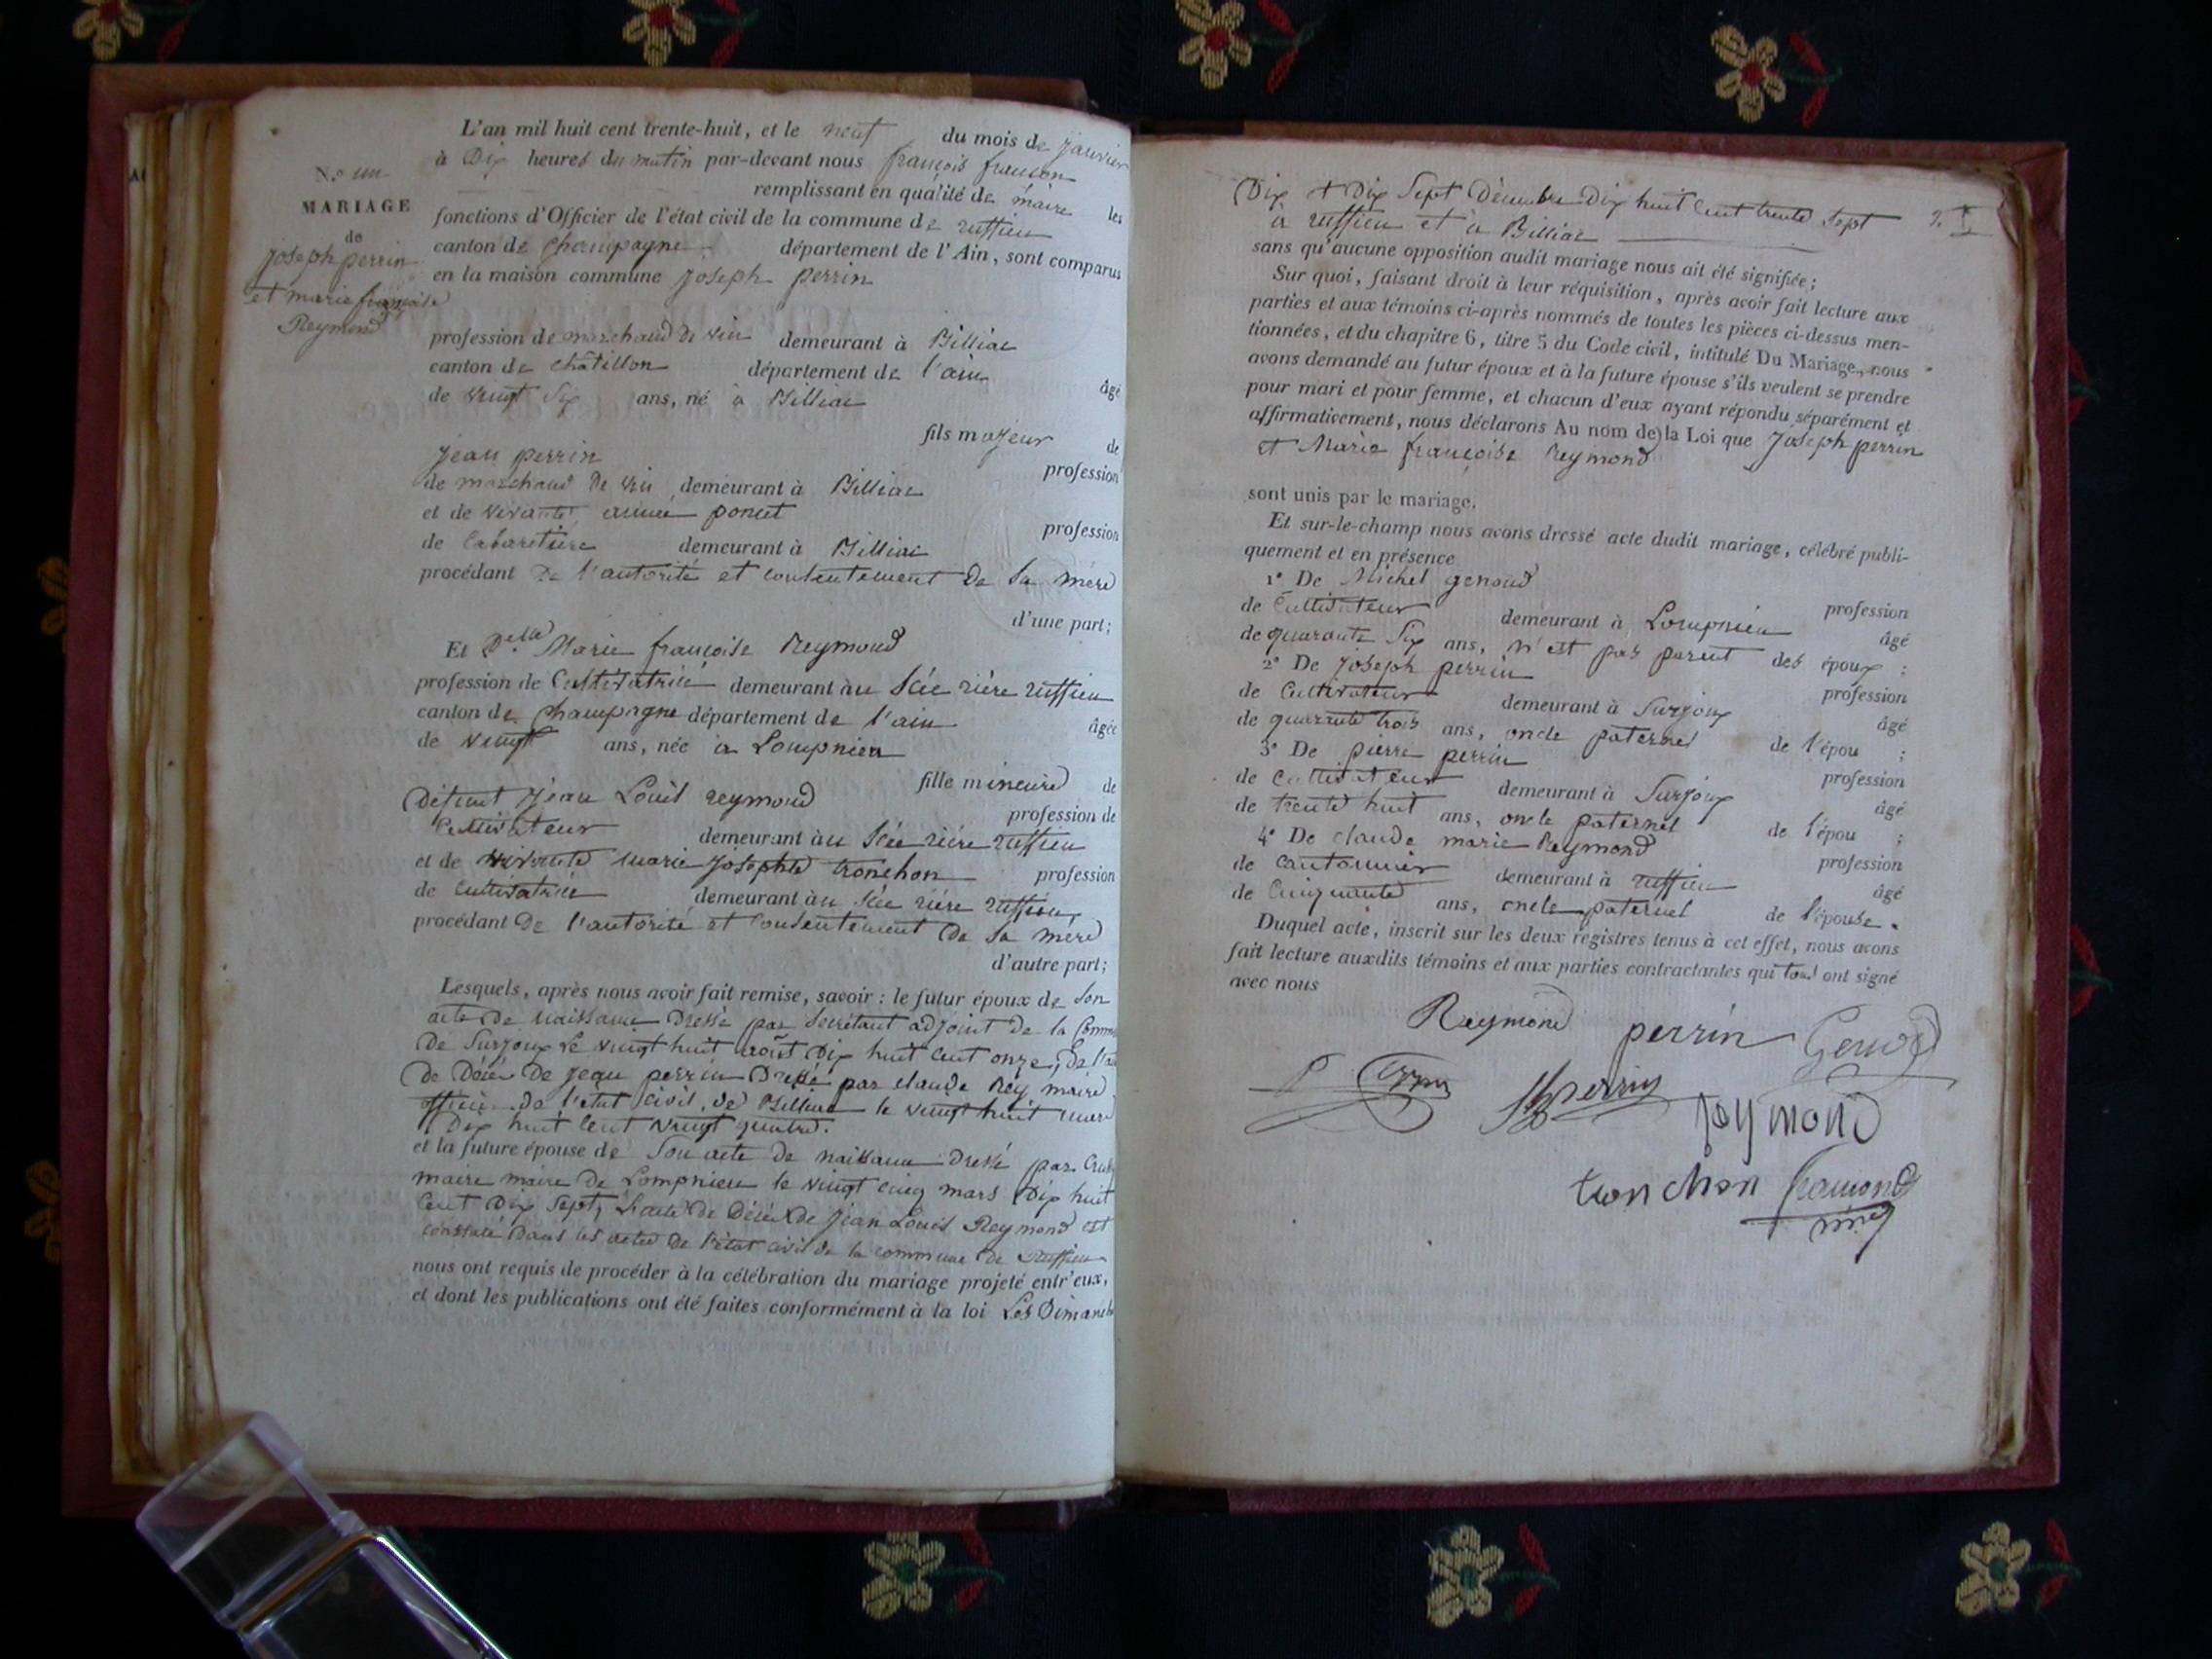 L'an mil huit cent trente-huit, et le neuf du mois de janvier
à Dix heures du matin par-devant nous françois
remplissant en qualité de maire les
fonctions d'Officier de l'état civil de la commune de ruffieu
canton de Champagne département de l'Ain, sont comparus
en la maison commune Joseph perrin
N.o un
MARIAGE
de
joseph perrin
et marie françoise
Reymond
profession de marchand de vin demeurant à Billiac
canton de châtillon département de l'ain âgé
de vingt Six ans, né à Billiac
fils majeur de
jean perrin profession
de marchand de vin demeurant à Billiac
et de vivante anne poncet profession
de Cabaretière demeurant à Billiac
procédant de l'autorité et consentement De Sa mère
d'une part;
Et D.elle Marie françoise Reymond
profession de Cultivatrice demeurant au Sée rière ruffieu
canton de Champagne département de l'ain âgée
de vingt ans, née à Lompnieu
fille mineure de
Défunt Jean Louis reymond profession de
Cultivateur demeurant au Sée rière ruffieu
et de vivante marie Josephte tronchon profession
de Cultivatrice demeurant au Sée rière ruffieu
procédant De l'autorité et Consentement De Sa mère
d'autre part;
Lesquels, après nous avoir fait remise, savoir : le futur époux de Son
acte de naissance Dressé par Secrétant adjoint de la
De Surjoux Le vingt huit août Dix huit cent onze;
De Décès De jean perrin Dressé par claude Rey maire
officier de l'état civil, de Billiac le vingt huit
Dix huit Cent vingt quatre.
et la future épouse de Son acte de naissance Dressé par
maire maire de Lompnieu le vingt cinq mars Dix huit
Cent Dix Sept, L'acte de Décès de Jean Louis Reymond est
constaté dans les actes de l'état civil de la commune de Ruffieu
nous ont requis de procéder à la célébration du mariage projeté entr'eux,
et dont les publications ont été faites conformément à la loi Les Dimanche
Dix et Dix Sept Décembre Dix huit Cent trente Sept
à ruffieu et à Billiac
sans qu'aucune opposition audit mariage nous ait été signifiée;
Sur quoi, faisant droit à leur réquisition, après avoir fait lecture aux
parties et aux témoins ci-après nommés de toutes les pièces ci-dessus men-
tionnées, et du chapitre 6, titre 5 du Code civil, intitulé Du Mariage, nous
avons demandé au futur époux et à la future épouse s'ils veulent se prendre
pour mari et pour femme, et chacun d'eux ayant répondu séparément et
affirmativement, nous déclarons Au nom de la Loi que Joseph perrin
et Marie françoise reymond
sont unis par le mariage.
Et sur-le-champ nous avons dressé acte dudit mariage, célébré publi-
quement et en présence
1° De Michel genoud profession
de Cultivateur demeurant à Lompnieu âgé
de quarante Six ans, n'est pas parent des époux ;
2° De joseph perrin profession
de Cultivateur demeurant à Surjoux âgé
de quarante trois ans, oncle paternel de l'épou ;
3° De pierre perrin profession
de Cultivateur demeurant à Surjoux âgé
de trente huit ans, oncle paternel de l'épou ;
4° De claude marie Reymond profession
de cantonnier demeurant à ruffieu âgé
de Cinquante ans, oncle paternel de l'épouse.
Duquel acte, inscrit sur les deux registres tenus à cet effet, nous avons
fait lecture auxdits témoins et aux parties contractantes qui tous ont signé
avec nous
Reymond perrin Genoud
perrin
reymond
tronchon